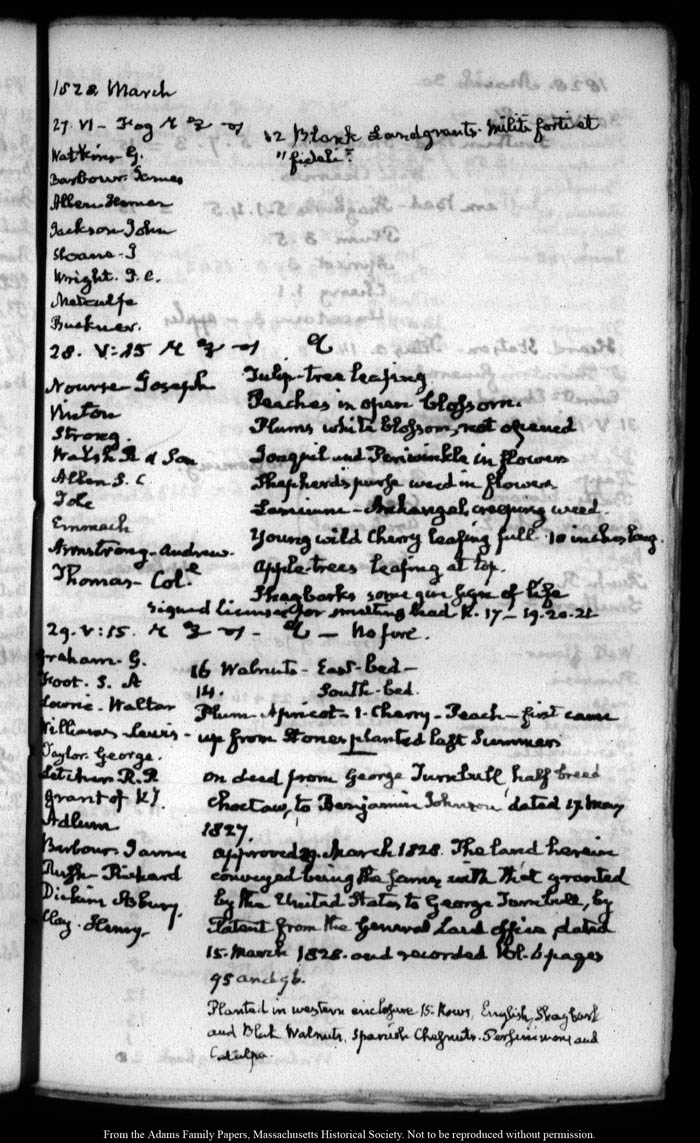 1828 March
27. VI - Fog
12 Blank Landgrants. Militi forti et
"fideli".
Watkins. G.
Barbour James
Allen Heman
Jackson John
Sloane. J
Wright. J. C.
Metcalfe
Buckner.
28. V:15
Nourse Joseph
Vinton
Strong.
Walsh R & Son
Allen S. C
Tole
Emmach
Armstrong - Andrew.
Thomas - Col.e
Tulip-tree leafing
Peaches in open blossom.
Plums white blossom, not opened
Jonquil and Periwinkle in flower
Shepherds purse weed in flower
Lamium - Archangel, creeping weed.
Young wild Cherry leafing full. 10 inches long.
Apple-trees leafing at top.
Shagbarks some give sign of life
Signed licenses for smelting lead N. 17-19.20.21
29. V:15. - No fire.
Graham. G.
Foot. S. A
Lowrie - Walter
Williams Lewis -
Taylor. George.
Letcher R. P
Grant of KY.
Adlum
Barbour James
Rush - Richard
Dickins Asbury.
Clay. Henry.
16 Walnuts - East-bed -
14. South-bed.
Plum - Apricot - 1 - Cherry - Peach - first came
up from Stones planted last Summer
On deed from George Turnbull half breed
Choctaw, to Benjamin Johnson dated 17 May
1827
approved 29. March 1828. The land herein
conveyed being the same with that granted
by the United States to George Turnbull, by
Patent from the General Land office, dated
15. March 1828. and recorded Vol. 6 pages
95 and 96.
Planted in western enclosure 15. Rows, English, Shagbark
and Black Walnuts, Spanish Chesnuts. Persimmons and
Catalpa.
From the Adams Family Papers, Massachusetts Historical Society. Not to be reproduced without permission.